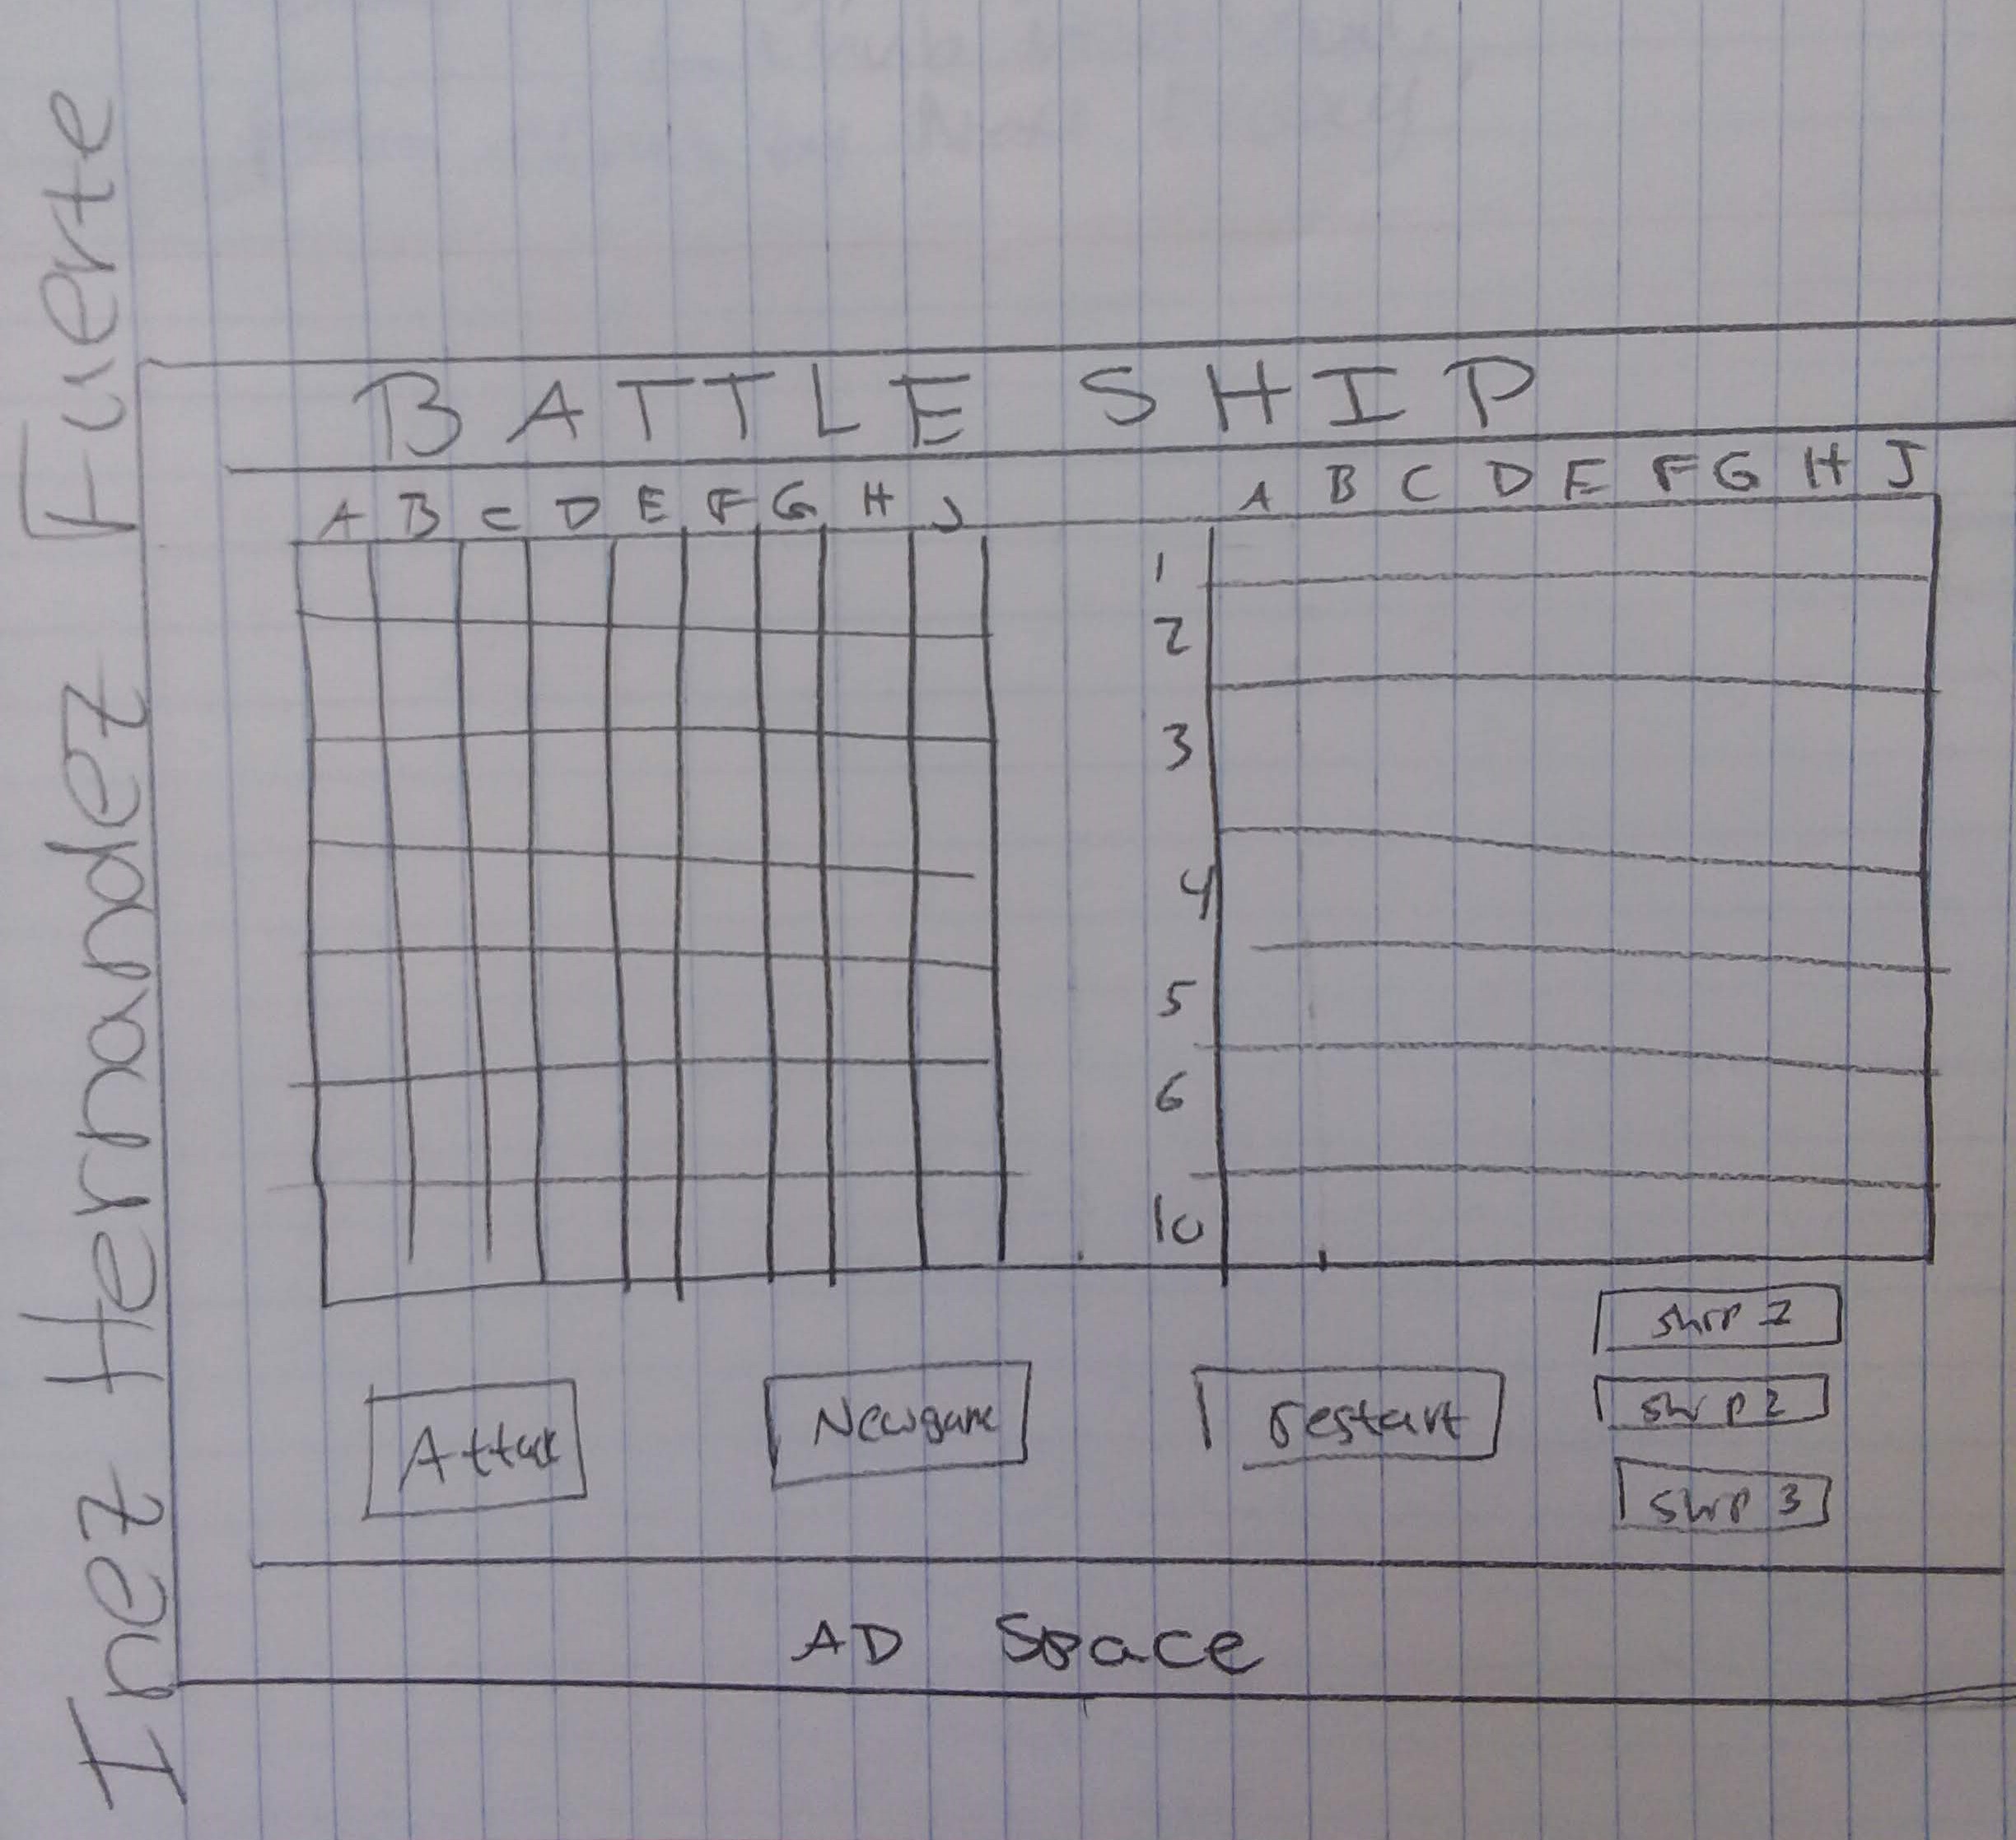 Inez Hernandez Fuerte
BATTLE SHIP
A B C D E F G H J
A B C D E F G H J
1
2
3
4
5
6
10
Attack
Newgame
restart
Ship 1
Ship 2
Ship 3
AD Space